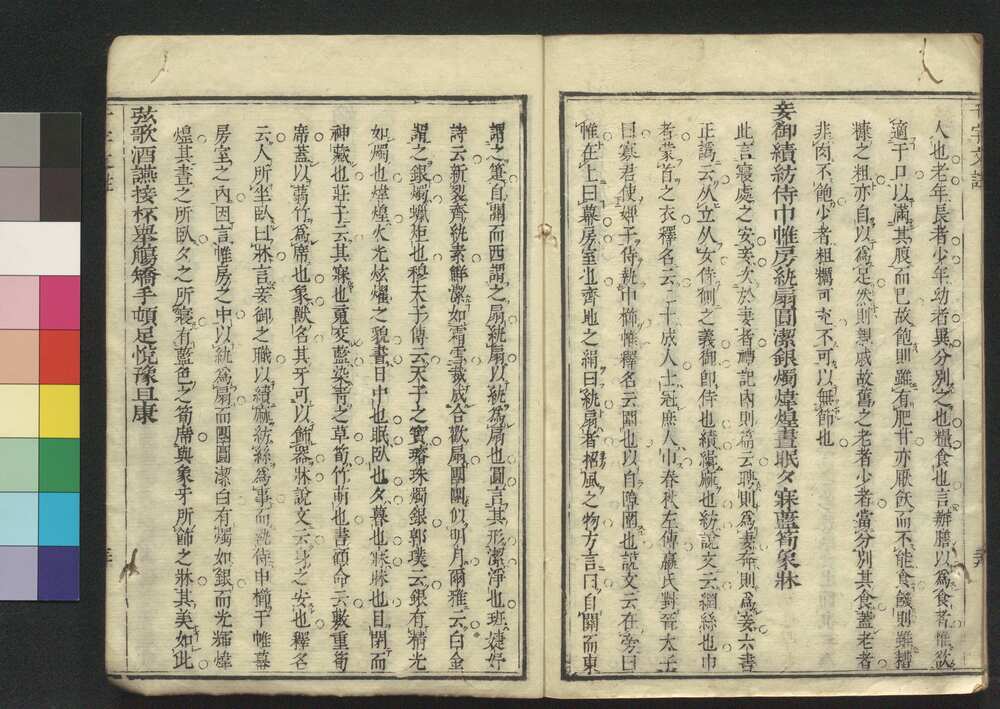 人也老年長者少年幼者異分別之也糧食也言辦膳以為食者惟欲
適于口以滿其腹而已故飽則雖有肥甘亦厭飫而不能食饑則雖糟
糠之粗亦自以為足然則親戚故舊之老者少者當分別其食蓋老者
非肉不飽少者粗糲可充不可以無節也
妾御績紡侍巾帷房紈扇圓潔銀燭煒煌晝眠夕寐藍筍象牀
此言寢處之安妾次於妻者禮記內則篇云聘則為妻奔則為妾六書
正譌云从立从女侍側之義御卽侍也績緝麻也紡說文云網絲也巾
者蒙首之衣釋名云二十成人士冠庶人巾春秋左傳嬴氏對晉太子
曰寡君使婢子侍執巾櫛帷釋名云圍也以自障圍也說文云在旁曰
帷在上曰幕房室也齊地之絹曰紈扇者招風之物方言曰自關而東
謂之箑自關而西謂之扇紈扇以紈為扇也圓言其形潔淨也班婕妤
詩云新裂齊紈素鮮潔如霜雪裁成合歡扇團團似明月爾雅云白金
謂之銀燭蠟炬也穆天子傳云天子之寶璿珠燭銀郭璞云銀有精光
如燭也煒煌火光炫燿之貌晝日中也眠臥也夕暮也寐寐也目閉而
神藏也莊子云其寐也䰟交藍染靑之草筍竹萌也書顧命云敷重筍
席蓋以蒻竹為席也象獸名其牙可以飾器牀說文云身之安也釋名
云人所坐臥曰牀言妾御之職以績麻紡絲為事而執侍巾櫛于帷幕
房室之內因言帷房之中以紈為扇而團圓潔白有燭如銀而光輝煒
煌其晝之所臥夕之所寢有藍色之筍席與象牙所飾之牀其美如此
弦歌酒讌接杯舉觴矯手頓足悅豫且康